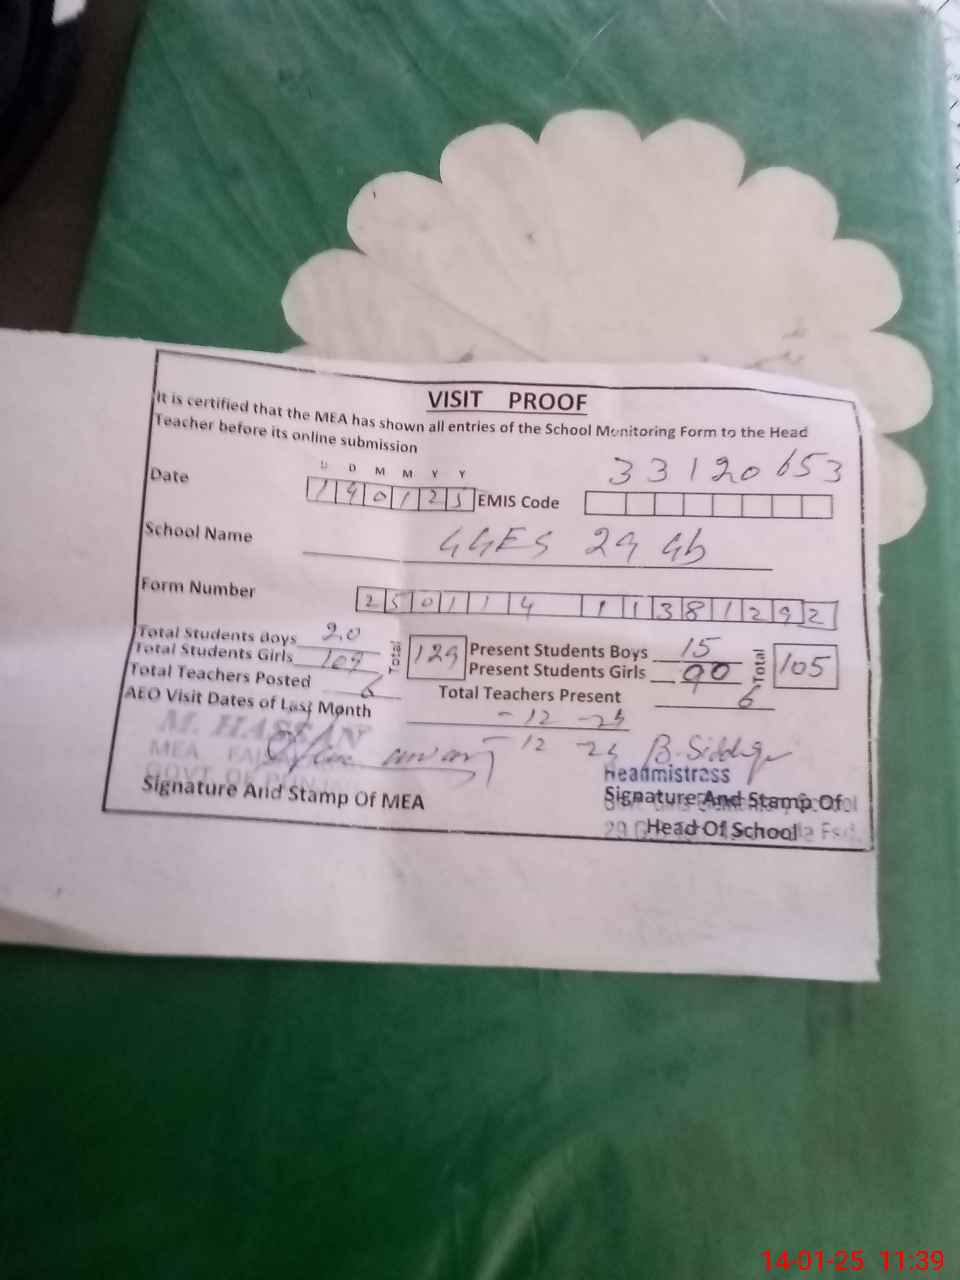 VISIT PROOF
It is certified that the MEA has shown all entries of the School Monitoring Form to the Head
Teacher before its online submission
D D M M Y Y
33120653
Date 140125 EMIS Code
School Name GGES 29 Gb
Form Number 250114 11381292
Total Students Boys 20
Total Students Girls 109
Total 129
Present Students Boys 15
Present Students Girls 90
Total 105
Total Teachers Posted 6
Total Teachers Present 6
AEO Visit Dates of Last Month
- 12 - 24
- 12 - 24
M. HASSAN
MEA
GOVT. OF
B. Siddiqa
Headmistress
Signature And Stamp Of MEA
Signature And Stamp Of
Head Of School
14-01-25 11:39